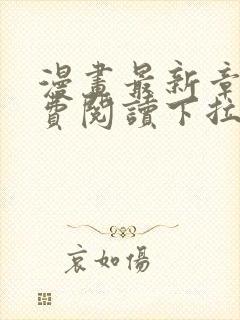 漫畫最新章
費閱讀下拉
哀如傷